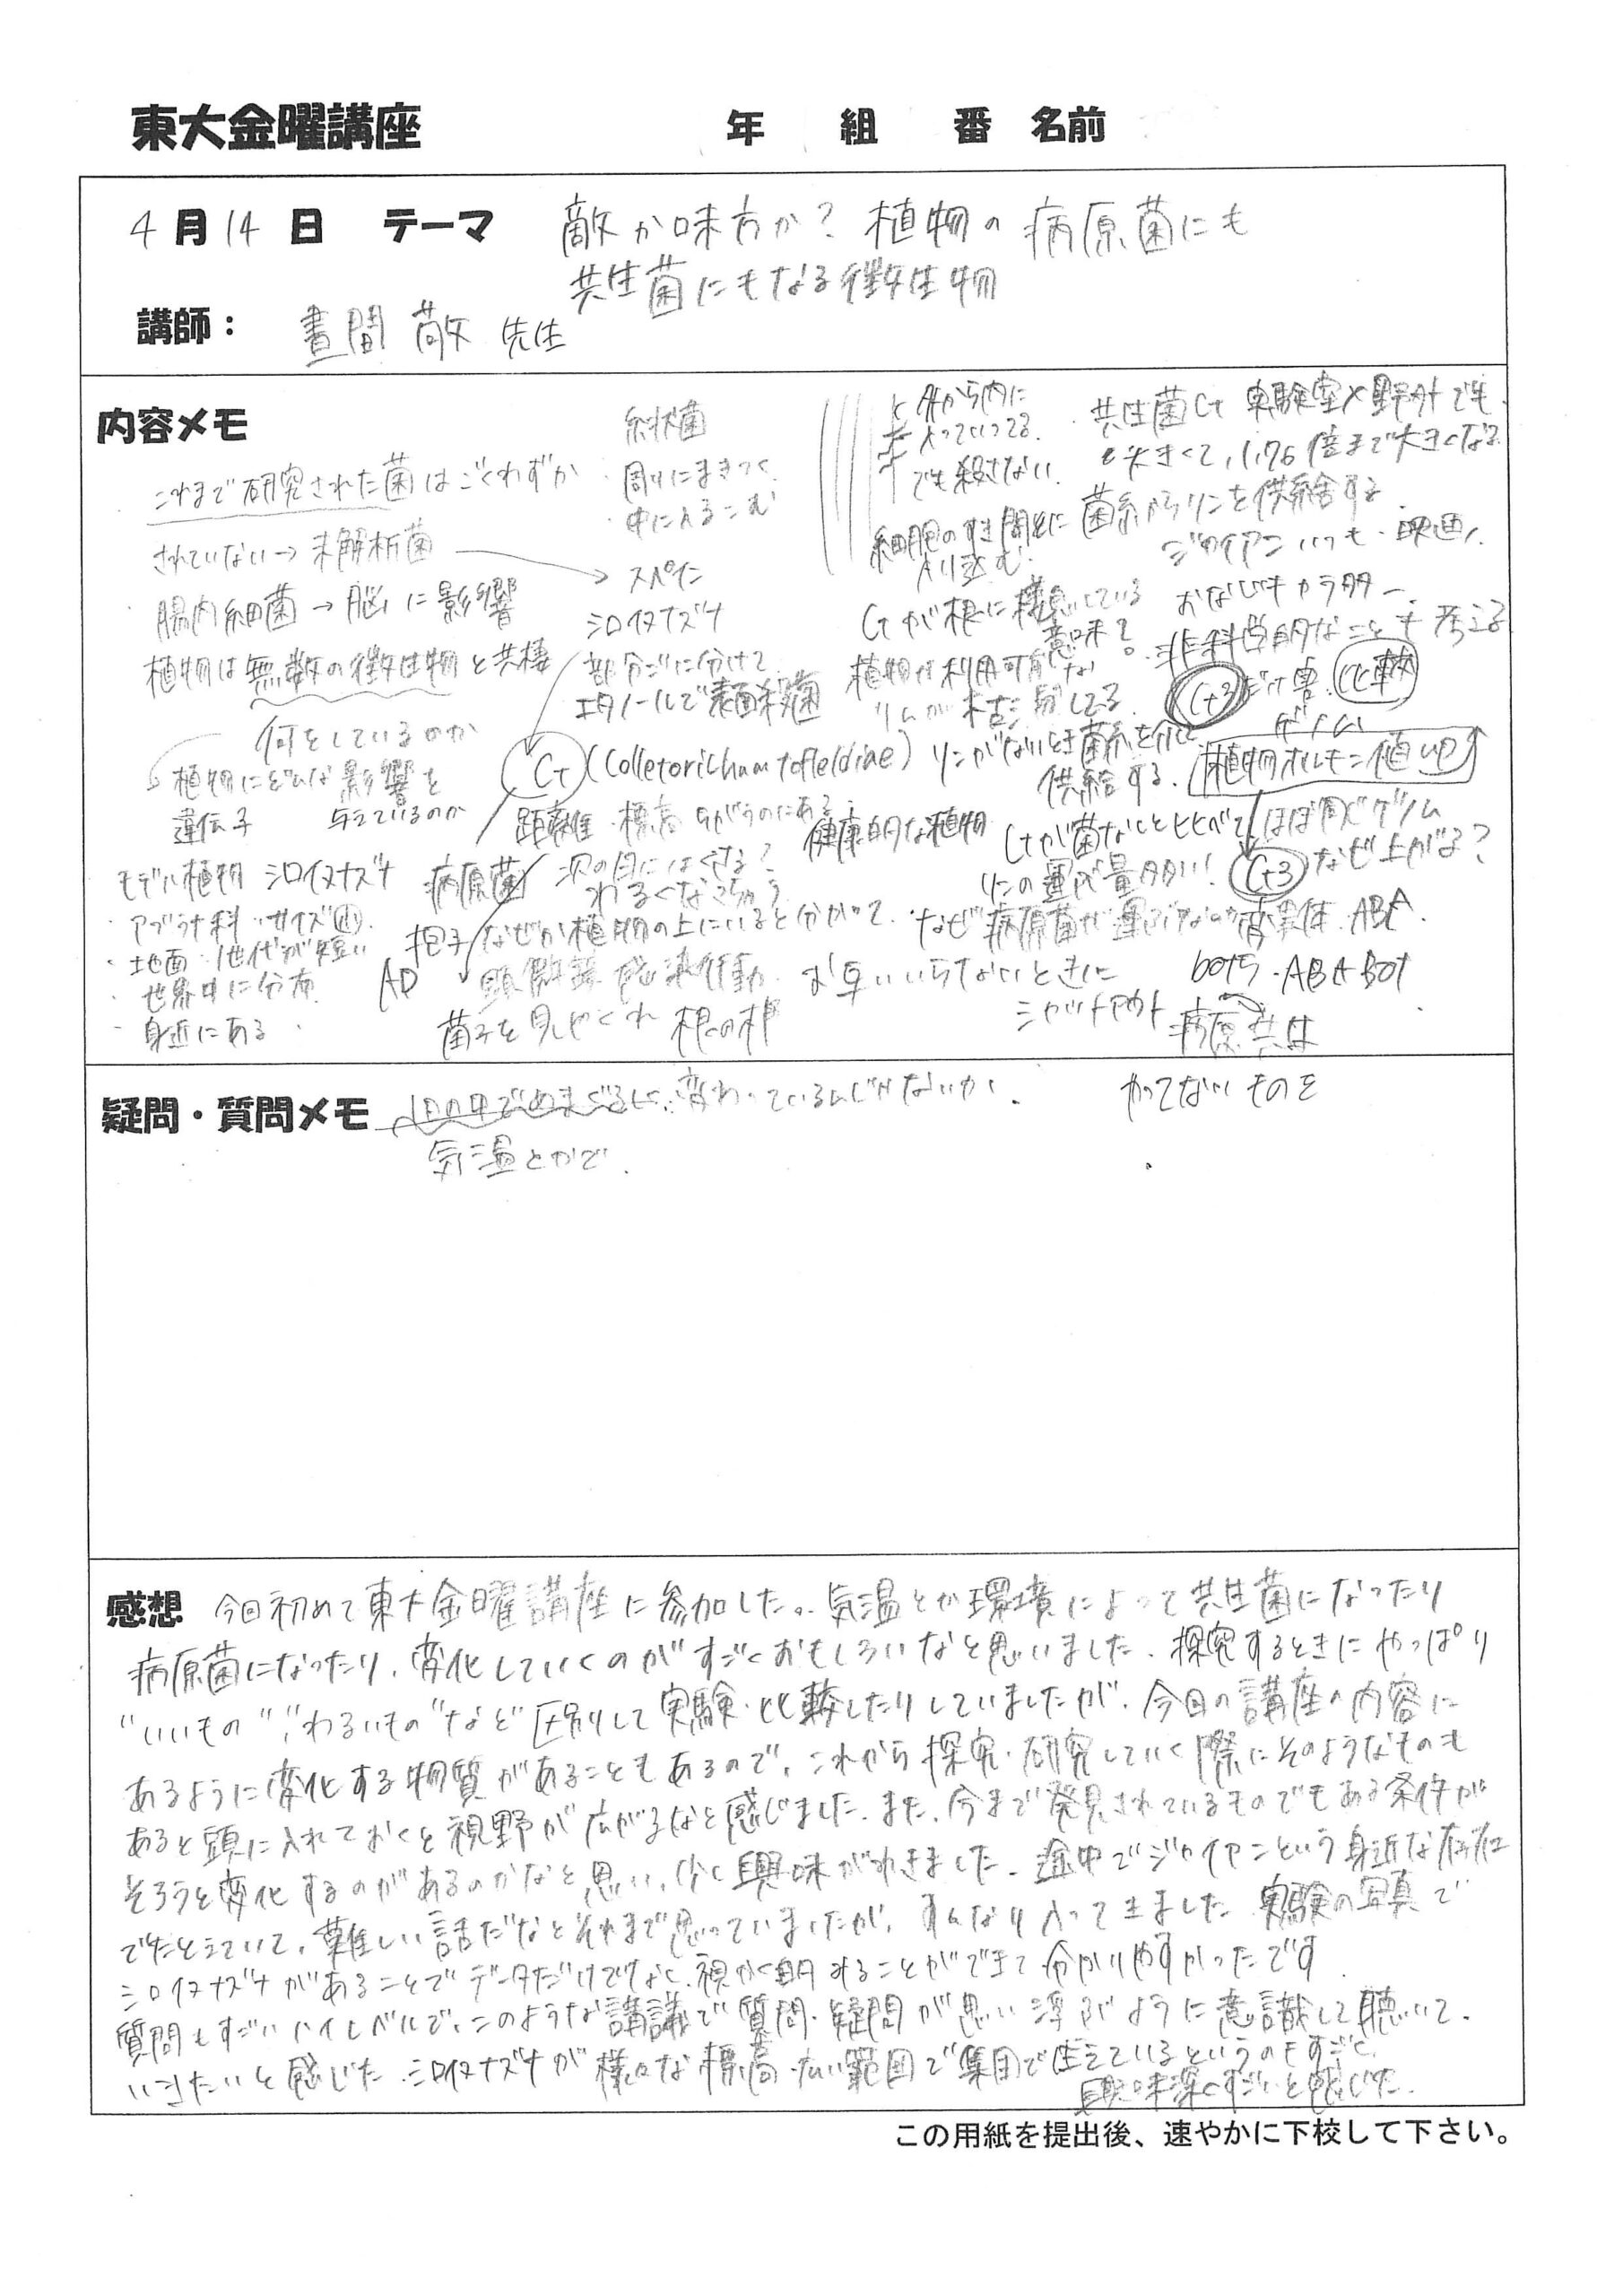 東大金曜講座
年 組 番 名前
4月14日 テーマ 敵か味方か？植物の病原菌にも
共生菌にもなる微生物
講師： 晝間 敬 先生
内容メモ
これまで研究された菌はごくわずか
されていない→未解析菌
・腸内細菌→脳に影響
植物は無数の微生物と共棲
何をしているのか
植物にどんな影響を
遺伝子 与えているのか
モデル植物 シロイヌナズナ
・アブラナ科・サイズ小
・地面・1世代が短い
・世界中に分布
・身近にある
糸状菌
・周りにまきつく
・中に入りこむ
スペイン
シロイヌナズナ
部分ごとに分けて
エタノールで表面殺菌
Ct (Colletorichum tofieldiae)
距離・標高 ちがうのにある
病原菌 次の日には
胞子 なぜか植物の上にいると分かって
AD 顕微鏡 感染行動
根の
外から内に
入っていってる
でも殺さない
細胞のすき間とかに
入り込む
Ctが根に棲息している
意味？
植物が利用可能な
リンが枯渇してる
リンがないとき菌糸を介して
供給する
健康的な植物
Ctが菌なしと比べて
リンの運ぶ量が多い！
なぜ病原菌が運ぶ
いらないときに
シャットアウト
共生菌Ct 実験室×野外でも
大きくて、1.76倍まで大きくなる
菌糸からリンを供給する
ジャイアン いつも・映画
非科学的なことも考える
Ct3だけ 比較
ゲノム
植物ホルモン値up
ほぼ同じゲノム
Ct3 なぜ上がる？
ABA
bot5・ABA BOT
病原 共生
疑問・質問メモ 1日の中でめまぐるしく変わっているんじゃないか
気温とかで
ものを
感想 今回初めて東大金曜講座に参加した。気温とか環境によって共生菌になったり
病原菌になったり、変化していくのがすごくおもしろいなと思いました。探究するときにやっぱり
"いいもの""わるいもの"など区別して実験・比較したりしていましたが、今回の講座の内容に
あるように変化する物質があることもあるので、これから探究・研究していく際にそのようなものも
あると頭に入れておくと視野が広がるなと感じました。また、今まで発見されているものでもある条件が
そろうと変化するのがあるのかなと思い、少し興味がわきました。途中でジャイアンという身近な存在
でたとえていて、難しい話だなとそれまで思っていましたが、すんなり入ってきました。実験の写真で
シロイヌナズナがあることでデータだけでなく、視かく的にみることができて分かりやすかったです。
質問もすごいハイレベルで、このような講議で質問・疑問が思い浮ぶように意識して聴いて
いきたいと感じた。シロイヌナズナが様々な標高・広い範囲で集団で生えているというのもすごく
興味深くすごいと感じた。
この用紙を提出後、速やかに下校して下さい。